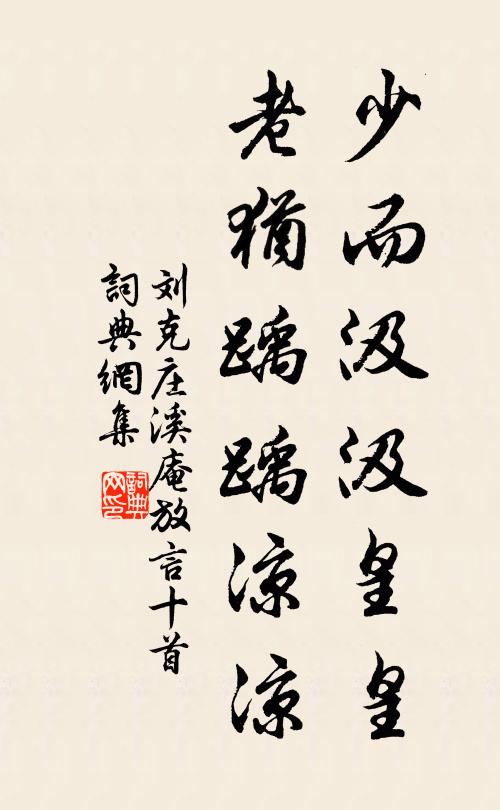 少而汲汲皇皇
老犹踽踽凉凉
刘克庄溪庵放言十首
詞典網集
詞典网印